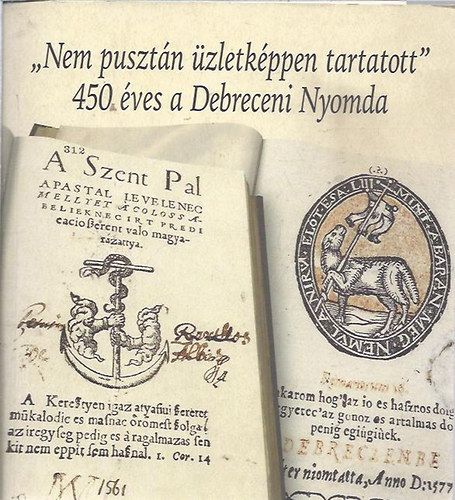 „Nem pusztán üzletképpen tartatott”
450 éves a Debreceni Nyomda
312
A Szent Pal
APASTAL LEVELENEC
MELLYET A COLOSSA-
BELIEKNEC IRT PREDI
cacio szerent valo magya-
razattya.
A Keresztyen igaz atyafiui szeretet
mũkalodic es masnac örömest szolgal
az iregyseg pedig es à ragalmazas sen
kit nem eppit sem hasnal. 1. Cor. 14
1561
(.?.)
MINT A BARANY MEG NEMVL A NIRV ELOT ESA. LIII
karom hog'az io es hasznos dolg
egyetec'az gonoz es artalmas do
penig egiugiüek.
DEBRECZENBE
ter niomtatta, Anno D:1577